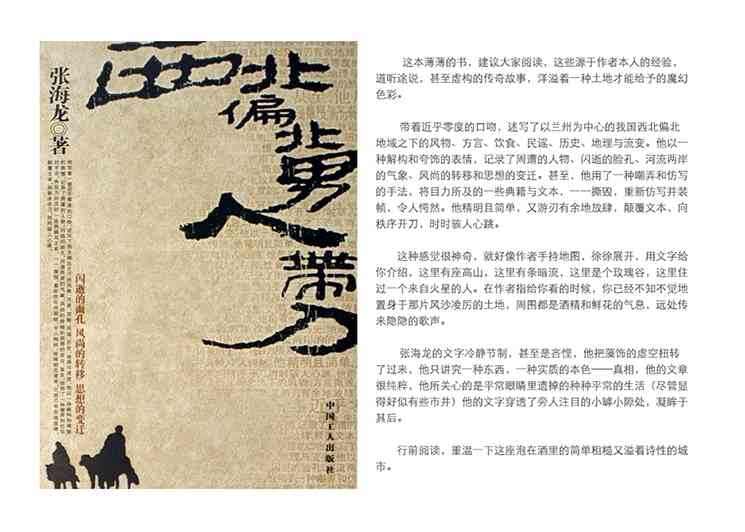 西北偏北男人带刀
张海龙◎著
闪逝的面孔 风尚的转移 思想的变迁
中国工人出版社
这本薄薄的书，建议大家阅读，这些源于作者本人的经验，
道听途说，甚至虚构的传奇故事，洋溢着一种土地才能给予的魔幻
色彩。
带着近乎零度的口吻，述写了以兰州为中心的我国西北偏北
地域之下的风物、方言、饮食、民谣、历史、地理与流变。他以一
种解构和夸饰的表情，记录了周遭的人物、闪逝的脸孔、河流两岸
的气象、风尚的转移和思想的变迁。甚至，他用了一种嘲弄和仿写
的手法，将目力所及的一些典籍与文本，一一撕毁，重新仿写并装
帧，令人愕然。他精明且简单，又游刃有余地放肆，颠覆文本，向
秩序开刀，时时骇人心跳。
这种感觉很神奇，就好像作者手持地图，徐徐展开，用文字给
你介绍，这里有座高山，这里有条暗流，这里是个玫瑰谷，这里住
过一个来自火星的人。在作者指给你看的时候，你已经不知不觉地
置身于那片风沙凌厉的土地，周围都是酒精和鲜花的气息，远处传
来隐隐的歌声。
张海龙的文字冷静节制，甚至是吝悭，他把藻饰的虚空扭转
了过来，他只讲究一种东西，一种实质的本色——真相，他的文章
很纯粹，他所关心的是平常眼睛里遗掉的种种平常的生活（尽管显
得好似有些市井）他的文字穿透了旁人注目的小罅小隙处，凝眸于
其后。
行前阅读，重温一下这座泡在酒里的简单粗糙又溢着诗性的城
市。